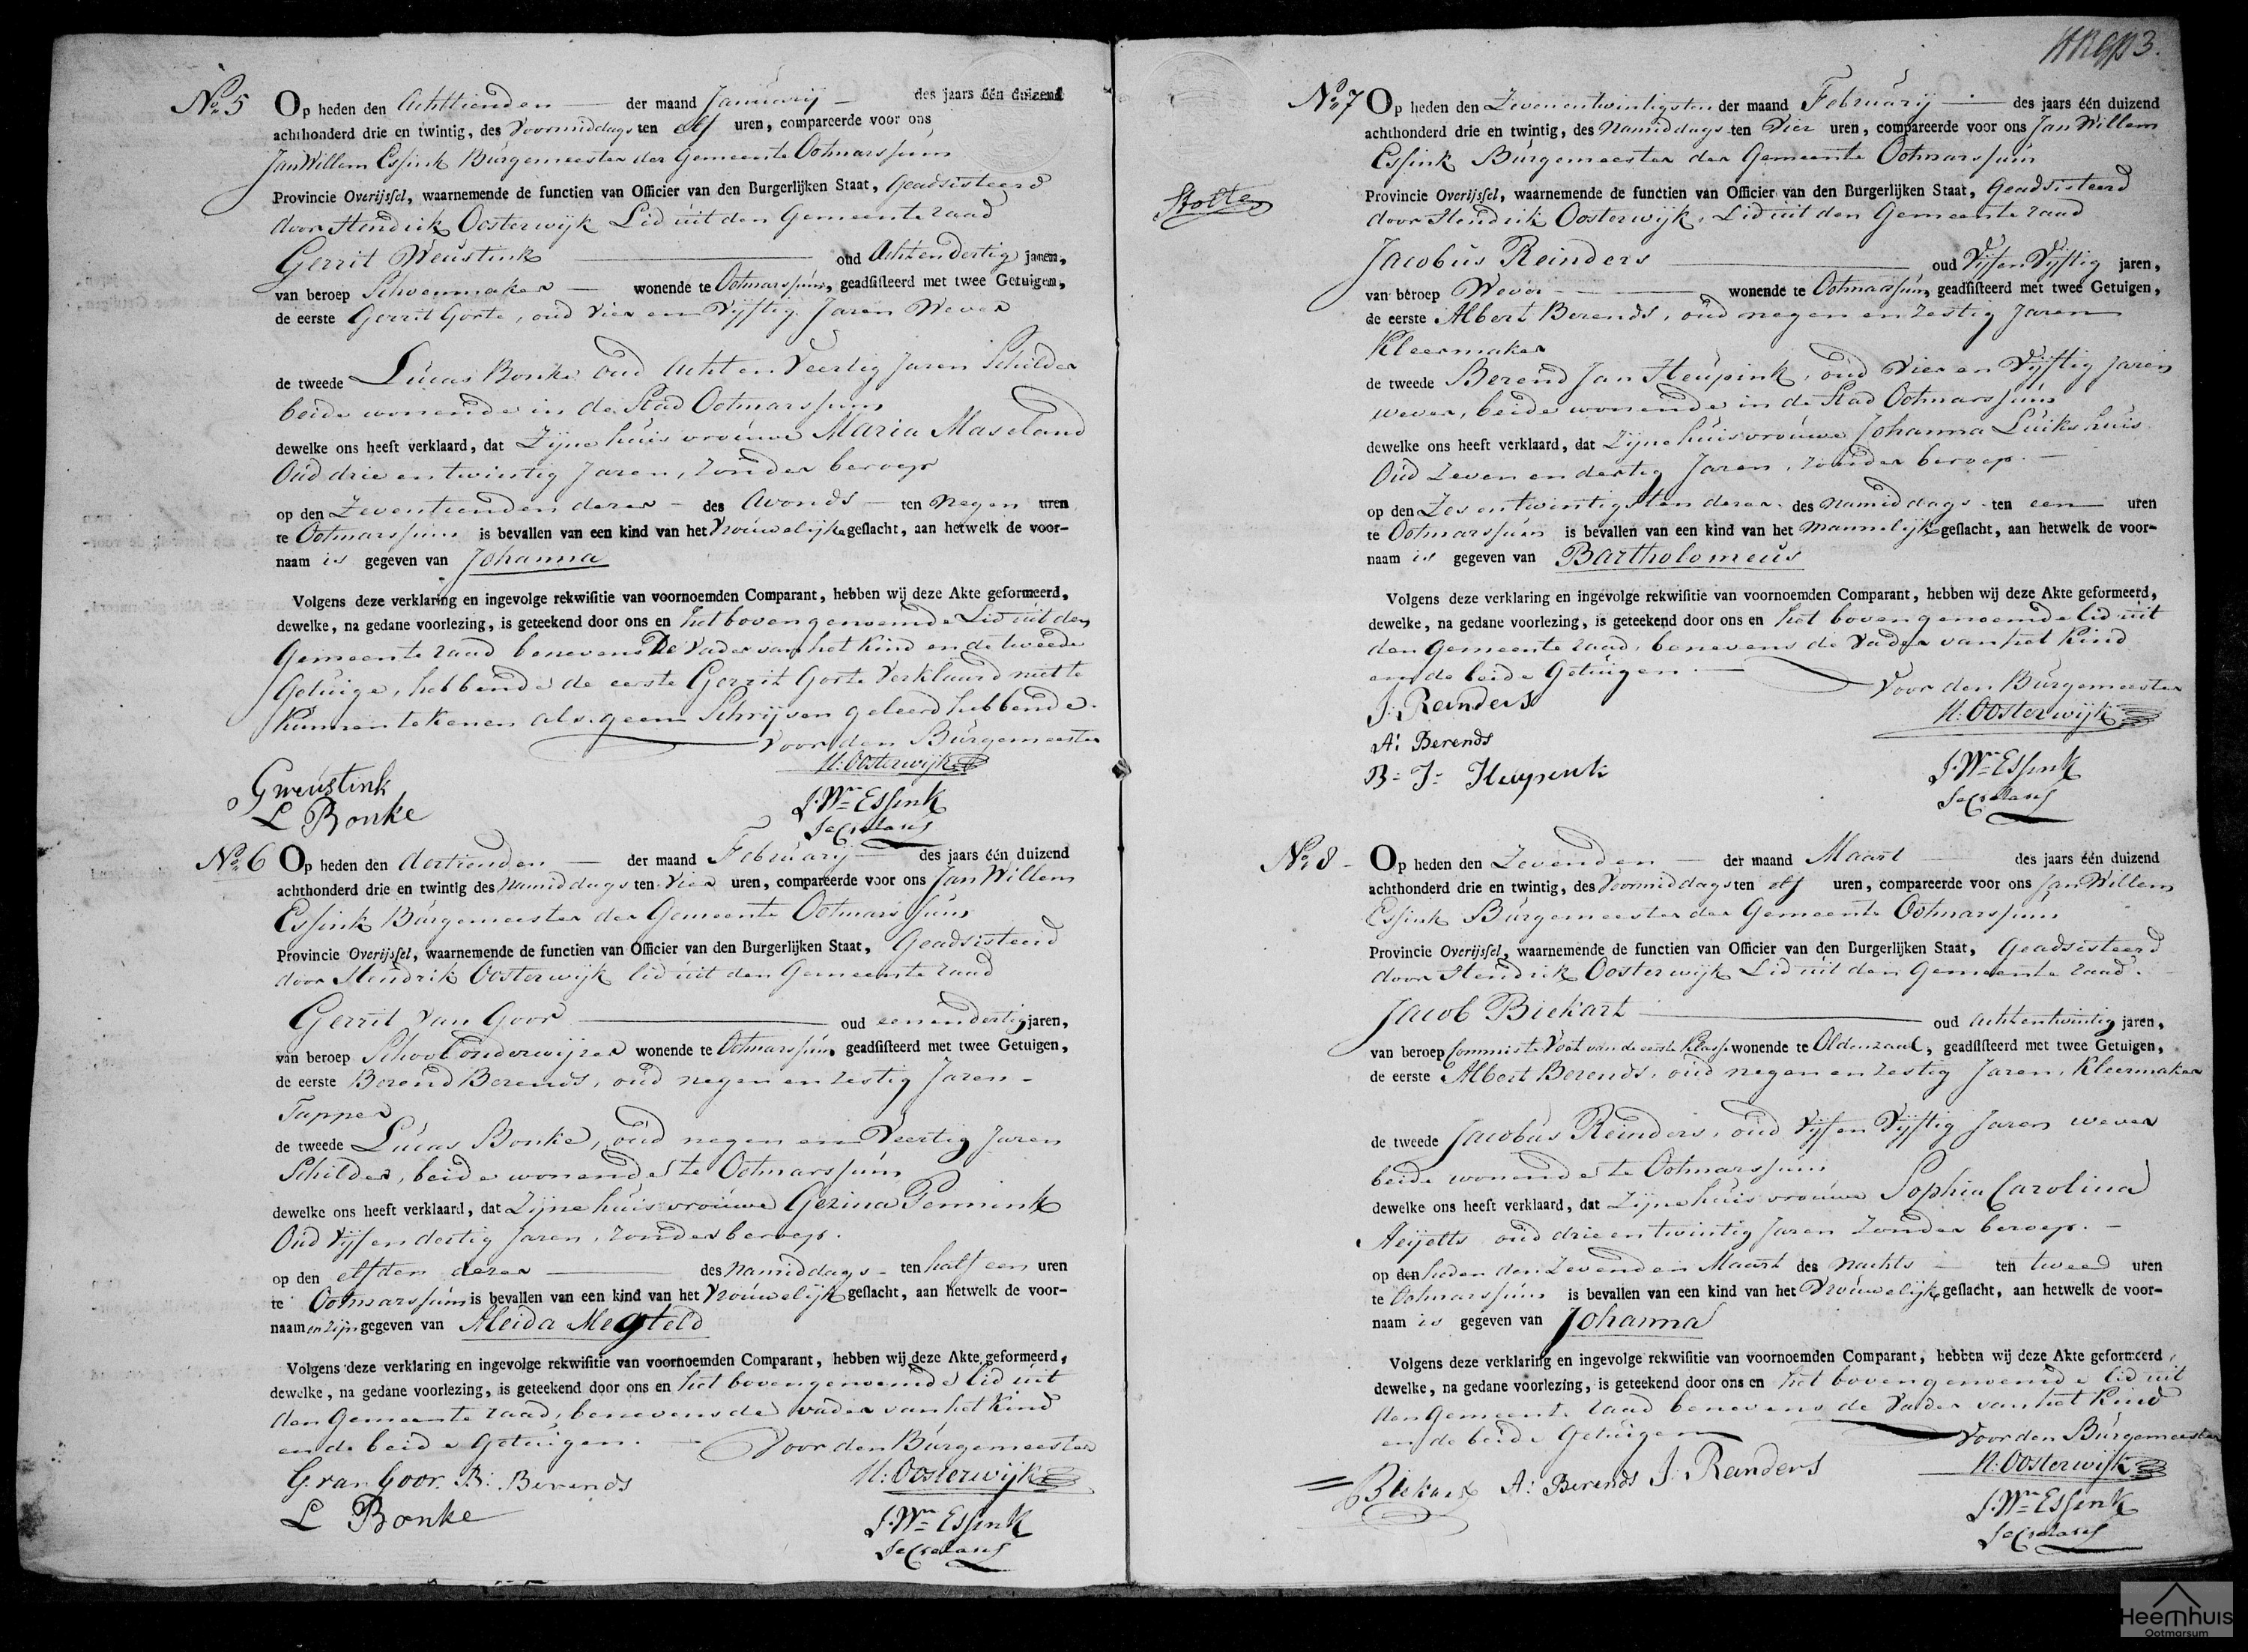 No. 5 Op heden den Achttienden — der maand Januarij — des jaars één duizend
achthonderd drie en twintig, des Voormiddags ten elf uren, compareerde voor ons
Jan Willem Essink Burgemeester der Gemeente Ootmarssum
Provincie Overijssel, waarnemende de functien van Officier van den Burgerlijken Staat, Geadsisteerd
door Hendrik Oosterwijk Lid uit den Gemeente raad
Gerrit Weustink — oud Acht en dertig jaren,
van beroep Schoenmaker — wonende te Ootmarssum, geadsisteerd met twee Getuigen,
de eerste Gerrit Gorte, oud vier en Vijftig Jaren Wever
de tweede Lucas Bonke oud Acht en Veertig Jaren Schilder
beide wonende in de Stad Ootmarssum
dewelke ons heeft verklaard, dat Zijne huisvrouwe Maria Maseland
Oud drie en twintig Jaren, zonder beroep
op den Zeventienden dezer — des Avonds — ten negen uren
te Ootmarssum is bevallen van een kind van het Vrouwelijke geslacht, aan hetwelk de voor-
naam is gegeven van Johanna
Volgens deze verklaring en ingevolge rekwisitie van voornoemden Comparant, hebben wij deze Akte geformeerd,
dewelke, na gedane voorlezing, is geteekend door ons en het bovengenoemde Lid uit den
Gemeente raad benevens De Vader van het Kind en de tweede
Getuige, hebbende de eerste Gerrit Gorte Verklaard niet te
Kunnen tekenen als geen Schrijven geleerd hebbende.
Voor den Burgemeester
H: Oosterwijk
GWeustink
L Bonke
J. Wm Essink
Secretaris
No. 6 Op heden den dertienden — der maand Februarij — des jaars één duizend
achthonderd drie en twintig des Namiddags ten Vier uren, compareerde voor ons Jan Willem
Essink Burgemeester der Gemeente Ootmarssum
Provincie Overijssel, waarnemende de functien van Officier van den Burgerlijken Staat, Geadsisteerd
door Hendrik Oosterwijk lid uit den Gemeente raad
Gerrit van Goor — oud een en dertig jaren,
van beroep Schoolonderwijzer wonende te Ootmarssum, geadsisteerd met twee Getuigen,
de eerste Berend Berends, oud negen en zestig Jaren -
Tapper
de tweede Lucas Bonke, oud negen en Veertig Jaren
Schilder, beide wonende te Ootmarssum
dewelke ons heeft verklaard, dat Zijne huisvrouwe Gezina Pennink
Oud Vijf en dertig Jaren, zonder beroep.
op den elfden dezer — des Namiddags - ten half een uren
te Ootmarssum is bevallen van een kind van het Vrouwelijk geslacht, aan hetwelk de voor-
naam en zijn gegeven van Aleida Megteld
Volgens deze verklaring en ingevolge rekwisitie van voornoemden Comparant, hebben wij deze Akte geformeerd,
dewelke, na gedane voorlezing, is geteekend door ons en het bovengenoemde lid uit
den Gemeente raad, benevens de vader van het Kind
en de beide Getuigen. — Voor den Burgemeester
G. van Goor. B: Berends
H: Oosterwijk
L Bonke
J. Wm Essink
Secretaris
No. 7 Op heden den Zeven en twintigsten der maand Februarij — des jaars één duizend
achthonderd drie en twintig, des Namiddags ten Vier uren, compareerde voor ons Jan Willem
Essink Burgemeester der Gemeente Ootmarssum
Provincie Overijssel, waarnemende de functien van Officier van den Burgerlijken Staat, Geadsisteerd
Stolte
door Hendrik Oosterwijk, Lid uit den Gemeente raad
Jacobus Reinders — oud Vijf en Vijftig jaren,
van beroep Wever — wonende te Ootmarssum, geadsisteerd met twee Getuigen,
de eerste Albert Berends, oud negen en zestig Jaren
Kleermaker
de tweede Berend Jan Heupink, oud Vier en Vijftig Jaren
wever, beide wonende in de Stad Ootmarssum
dewelke ons heeft verklaard, dat Zijne huisvrouwe Johanna Luikshuis
Oud Zeven en dertig Jaren, zonder beroep. —
op den Zes en twintigsten dezer. des Namiddags - ten een uren
te Ootmarssum is bevallen van een kind van het Mannelijk geslacht, aan hetwelk de voor-
naam is gegeven van Bartholomeus
Volgens deze verklaring en ingevolge rekwisitie van voornoemden Comparant, hebben wij deze Akte geformeerd,
dewelke, na gedane voorlezing, is geteekend door ons en het bovengenoemde lid uit
den Gemeente raad, benevens de Vader van het Kind
en de beide Getuigen. —
Voor den Burgemeester
J: Reinders
H: Oosterwijk
A: Berends
B: J: Heupink
J. Wm Essink
Secretaris
No. 8 - Op heden den Zevenden — der maand Maart — des jaars één duizend
achthonderd drie en twintig, des Voormiddags ten elf uren, compareerde voor ons Jan Willem
Essink Burgemeester der Gemeente Ootmarssum
Provincie Overijssel, waarnemende de functien van Officier van den Burgerlijken Staat, Geadsisteerd
door Hendrik Oosterwijk Lid uit den Gemeente raad.
Jacob Biekart — oud Acht en twintig jaren,
van beroep Commis te Voet van de eerste Klasse wonende te Oldenzaal, geadsisteerd met twee Getuigen,
de eerste Albert Berends, oud negen en zestig Jaren, Kleermaker
de tweede Jacobus Reinders, oud Vijf en Vijftig Jaren wever
beide wonende te Ootmarssum
dewelke ons heeft verklaard, dat Zijne huisvrouwe Sophia Carolina
Aeijelts oud drie en twintig Jaren zonder beroep. —
op den heden den Zevenden Maart des Nachts — ten twee uren
te Ootmarssum is bevallen van een kind van het Vrouwelijk geslacht, aan hetwelk de voor-
naam is gegeven van Johanna
Volgens deze verklaring en ingevolge rekwisitie van voornoemden Comparant, hebben wij deze Akte geformeerd,
dewelke, na gedane voorlezing, is geteekend door ons en het bovengenoemde lid uit
den Gemeente raad benevens de Vader van het Kind
en de beide Getuigen
Voor den Burgemeester
Biekart A: Berends J: Reinders
H: Oosterwijk
J. Wm Essink
Secretaris
Heemhuis
Ootmarsum